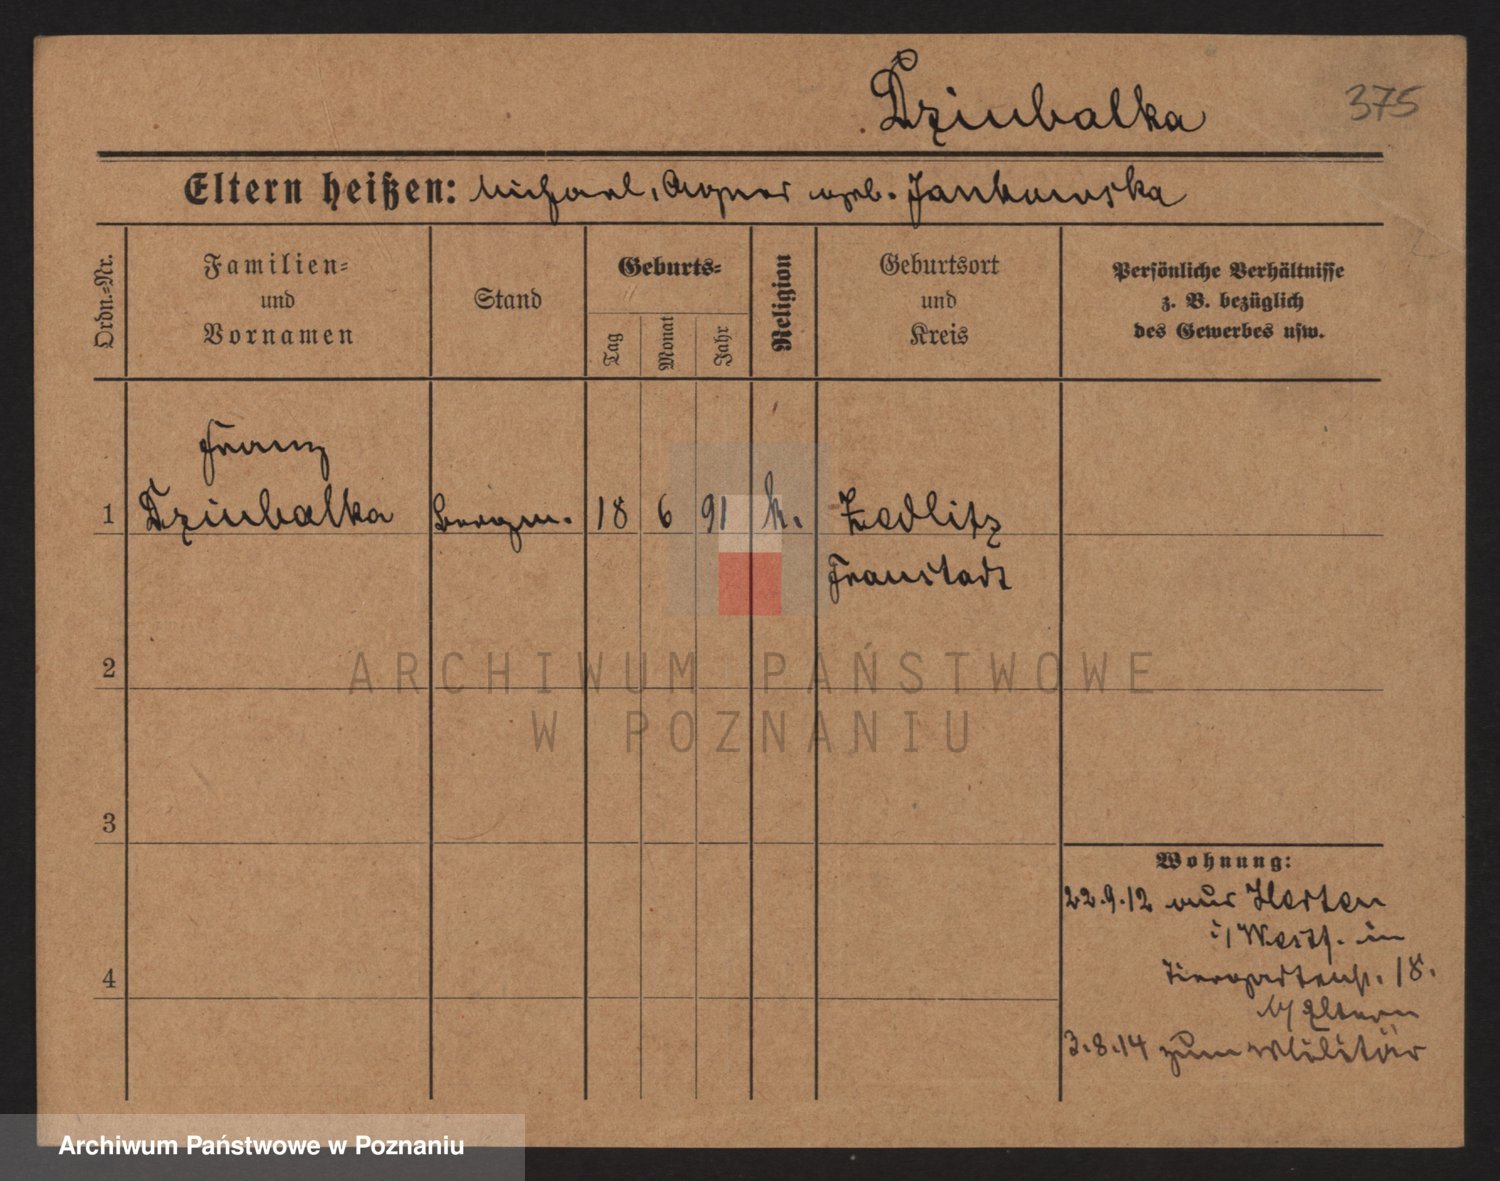 Dziubalka
375
Eltern heißen: Michael, Agnes geb. Jankowska
Ordn.-Nr.
Familien-
und
Vornamen
Stand
Geburts-
Tag
Monat
Jahr
Religion
Geburtsort
und
Kreis
Persönliche Verhältnisse
z. B. bezüglich
des Gewerbes usw.
Franz
1 Dziubalka Bergm. 18 6 91 k. Zedlitz
Fraustadt
2
3
4
Wohnung:
22.9.12 aus Herten
i/Westf. in
Tiergartenstr. 18.
b/ Eltern
3.8.14 zum Militär
ARCHIWUM PAŃSTWOWE
W POZNANIU
Archiwum Państwowe w Poznaniu